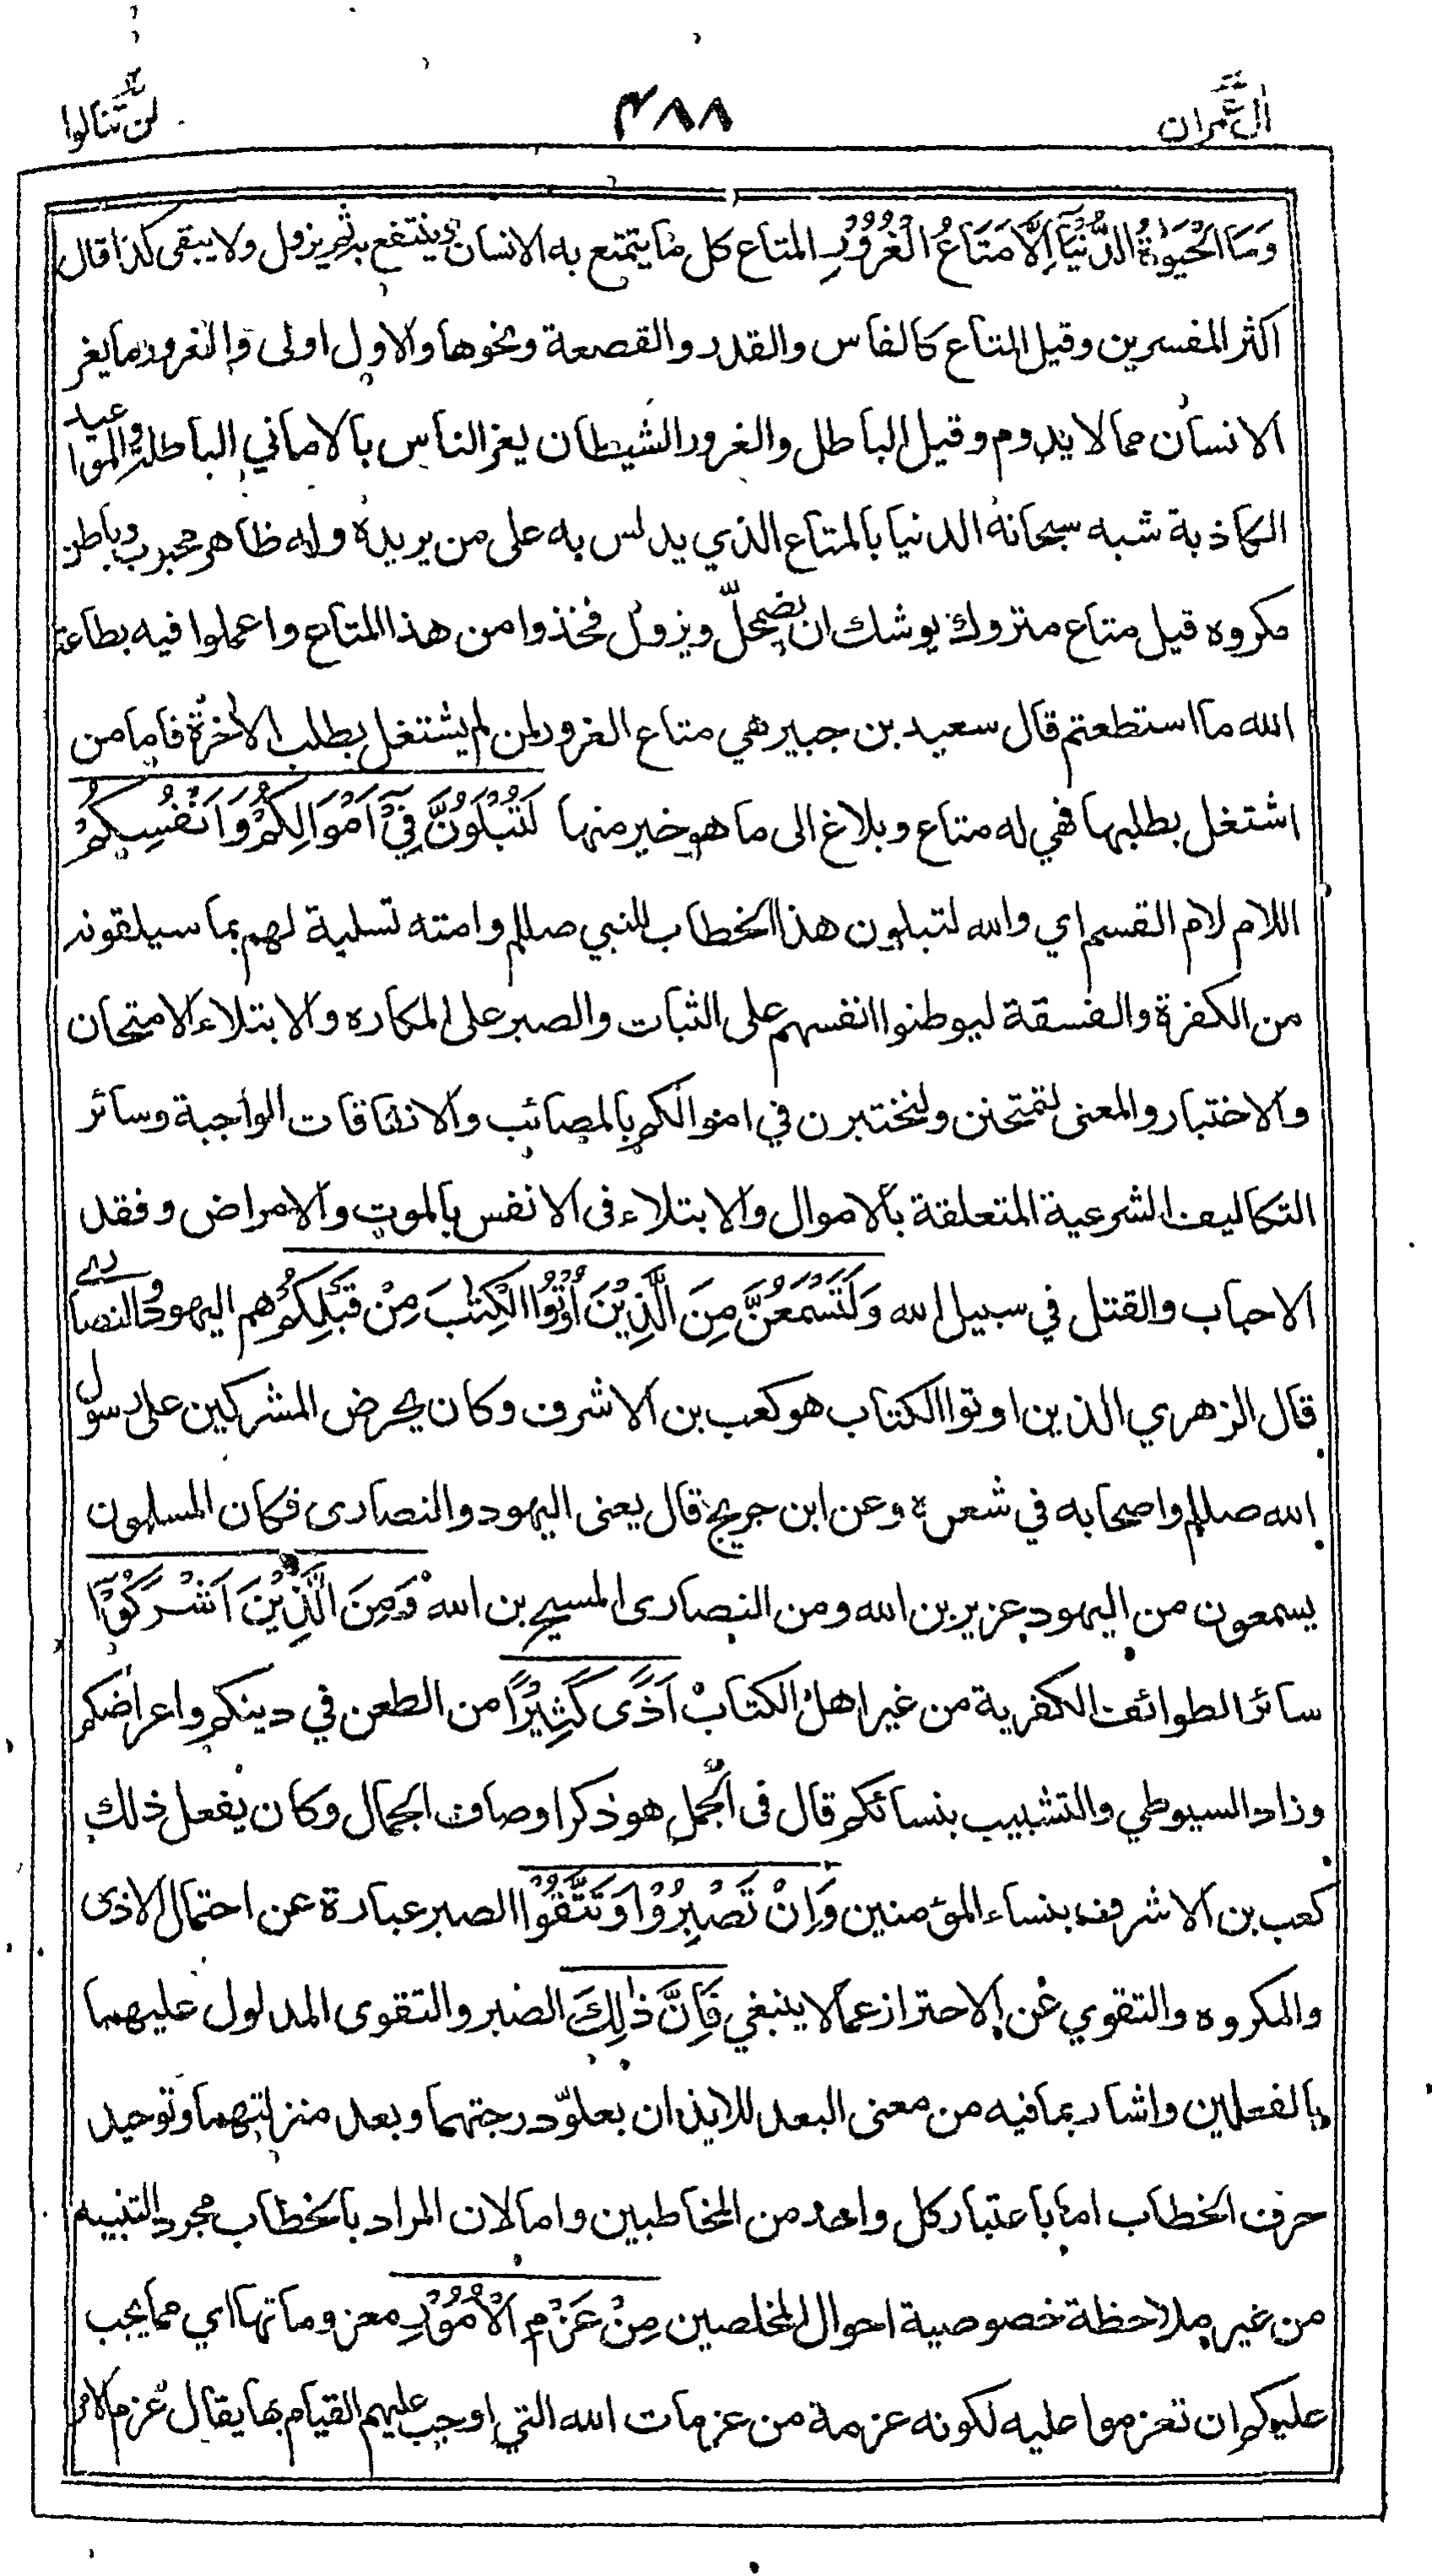 اٰل عمران
۴۸۸
لن تنالوا
وَمَا الْحَيٰوةُ الدُّنْيَآ اِلَّا مَتَاعُ الْغُرُوْرِ المتاع كل ما يتمتع به الانسان وينتفع به ثم يزول ولا يبقى كذا قال
اكثر المفسرين وقيل المتاع كالفاس والقدر والقصعة ونحوها والاول اولى والغرور ما يغر
الانسان مما لا يدوم وقيل الباطل والغرور الشيطان يغر الناس بالاماني الباطلة والمواعيد
الكاذبة شبه سبحانه الدنيا بالمتاع الذي يدلس به على من يريده وله ظاهر محبوب وباطن
مكروه قيل متاع متروك يوشك ان يضمحلّ ويزول فخذوا من هذا المتاع واعملوا فيه بطاعة
الله ما استطعتم قال سعيد بن جبير هي متاع الغرور لمن لم يشتغل بطلب الاخرة فاما من
اشتغل بطلبها فهي له متاع وبلاغ الى ما هو خير منها لَتُبْلَوُنَّ فِيْٓ اَمْوَالِكُمْ وَاَنْفُسِكُمْ
اللام لام القسم اي والله لتبلون هذا الخطاب للنبي صللم وامته تسلية لهم بما سيلقونه
من الكفرة والفسقة ليوطنوا انفسهم على الثبات والصبر على المكاره والابتلاء الامتحان
والاختبار والمعنى لتمتحنن ولتختبرن في اموالكم بالمصائب والانفاقات الواجبة وسائر
التكاليف الشرعية المتعلقة بالاموال والابتلاء فى الانفس بالموت والامراض وفقد
الاحباب والقتل في سبيل الله وَلَتَسْمَعُنَّ مِنَ الَّذِيْنَ اُوْتُوا الْكِتٰبَ مِنْ قَبْلِكُمْ هم اليهود والنصارى
قال الزهري الذين اوتوا الكتاب هو كعب بن الاشرف وكان يحرض المشركين على رسول
الله صللم واصحابه في شعره وعن ابن جريج قال يعنى اليهود والنصارى فكان المسلمون
يسمعون من اليهود عزير بن الله ومن النصارى المسيح بن الله وَمِنَ الَّذِيْنَ اَشْرَكُوْٓا
سائر الطوائف الكفرية من غير اهل الكتاب اَذًى كَثِيْرًا من الطعن في دينكم واعراضكم
وزاد السيوطي والتشبيب بنسائكم قال فى الجمل هو ذكر اوصاف الجمال وكان يفعل ذلك
كعب بن الاشرف بنساء المؤمنين وَاِنْ تَصْبِرُوْا وَتَتَّقُوْا الصبر عبارة عن احتمال الاذى
والمكروه والتقوي عن الاحتراز عما لا ينبغي فَاِنَّ ذٰلِكَ الصبر والتقوى المدلول عليهما
بالفعلين واشار بما فيه من معنى البعد للايذان بعلوّ درجتهما وبعد منزلتهما وتوحيد
حرف الخطاب اما باعتبار كل واحد من المخاطبين واما لان المراد بالخطاب مجرد التنبيه
من غير ملاحظة خصوصية احوال المخلصين مِنْ عَزْمِ الْاُمُوْرِ معزوماتها اي مما يجب
عليكم ان تعزموا عليه لكونه عزمة من عزمات الله التي اوجب عليهم القيام بها يقال عزم الامر